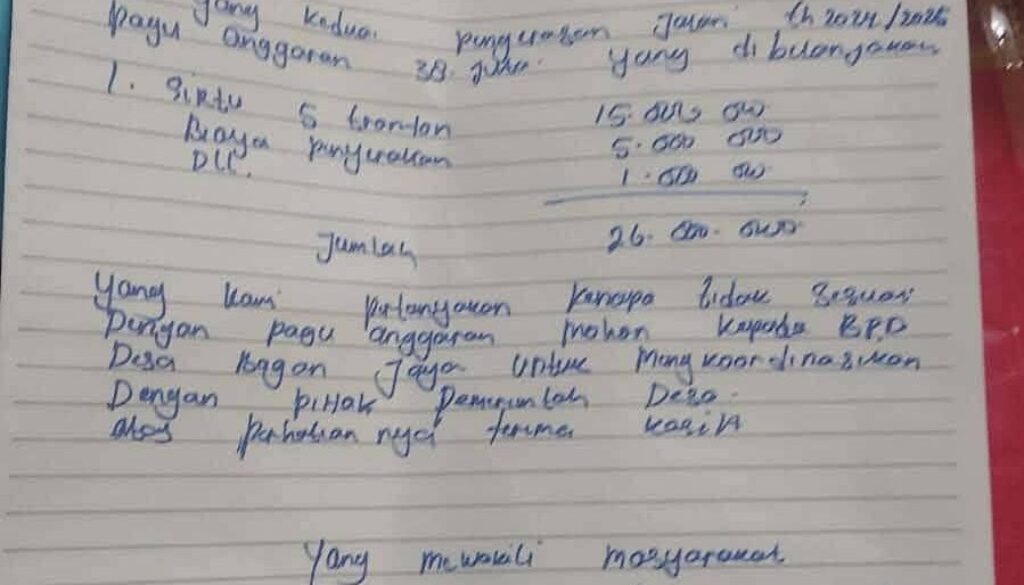 yang kedua pengerasan jalan th 2024/2025
pagu anggaran 38. juta. yang dibelanjakan
1. Sirtu 5 tronton 15.000 000
Biaya penyerakan 5.000 000
DLL. 1.000 000
Jumlah 26.000.000
Yang kami pertanyakan kenapa tidak sesuai
Dengan pagu anggaran mohon kepada BPD
Desa Bagan Jaya untuk mengkoordinasikan
Dengan pihak pemerintah Desa.
atas perhatian nya terima kasih
Yang mewakili masyarakat